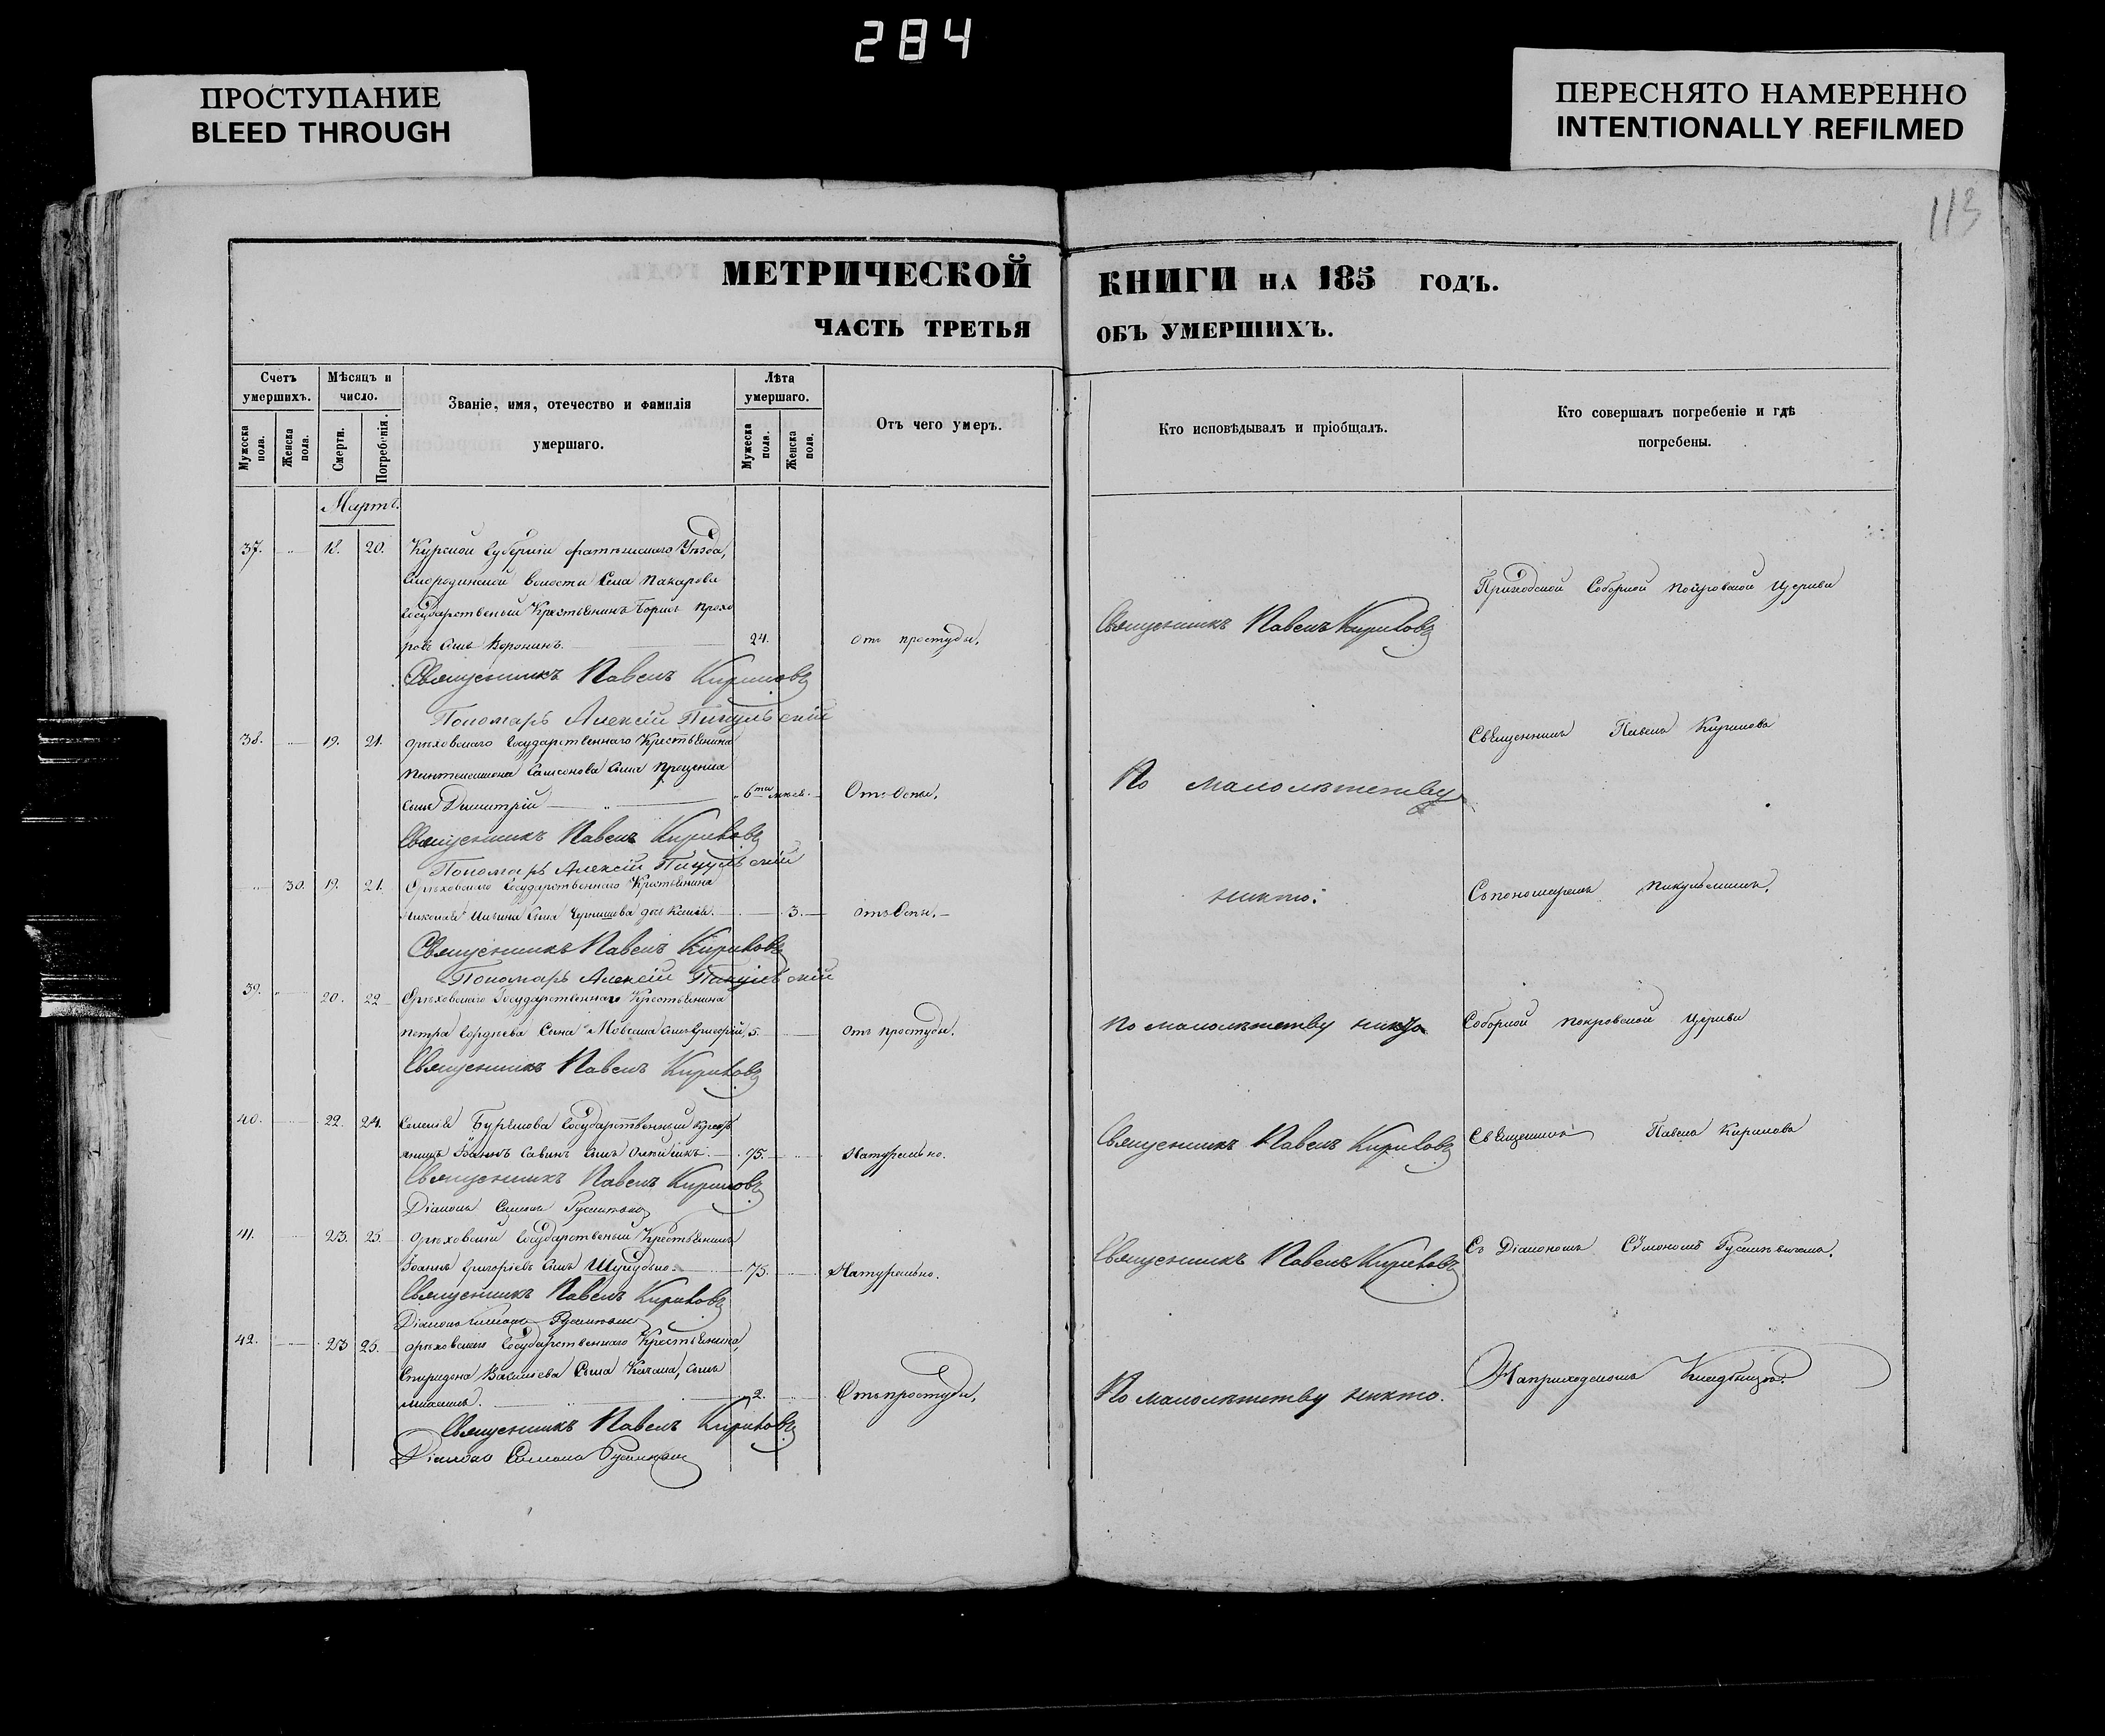 284
ПРОСТУПАНИЕ
BLEED THROUGH
ПЕРЕСНЯТО НАМЕРЕННО
INTENTIONALLY REFILMED
113
МЕТРИЧЕСКОЙ КНИГИ НА 185 ГОДЪ.
ЧАСТЬ ТРЕТЬЯ ОБЪ УМЕРШИХЪ.
Счетъ умершихъ.
Мужеска пола.
Женска пола.
Мѣсяцъ и число.
Смерти.
Погребенія.
Званіе, имя, отечество и фамилія
умершаго.
Лѣта умершаго.
Мужеска пола.
Женска пола.
Отъ чего умеръ.
Кто исповѣдывалъ и пріобщалъ.
Кто совершалъ погребеніе и гдѣ
погребены.
Мартъ.
37. 18. 20. Курской Губерніи Фатежскаго Уѣзда,
Смородинской Волости Села Макарова
Государственный Крестьянинъ Борисъ Прохо
ровъ Сынъ Воронинъ. 24. Отъ простуды.
Священникъ Павелъ Кириловъ
Приходской Соборной Покровской Церкви
Священникъ Павелъ Кириловъ
Пономарь Алексій Пикульскій
38. 19. 21. Орѣховскаго Государственнаго Крестьянина
Пантелеимона Самсонова Сына Проценка
сынъ Димитрій 6ти мѣсяц. Отъ Оспы.
По малолѣтству
Священникъ Павелъ Кириловъ
Священникъ Павелъ Кириловъ
Пономарь Алексій Пикульскій
30. 19. 21. Орѣховскаго Государственнаго Крестьянина
Николая Ильина Сына Чернишова дочь 3. Отъ Оспы.
никто.
Съ пономаремъ Пикульскимъ.
Священникъ Павелъ Кириловъ
Пономарь Алексій Пикульскій
39. 20. 22 Орѣховскаго Государственнаго Крестьянина
Петра Гордѣева Сына Сынъ Григорій 5. Отъ простуды.
По малолѣтству никто
Соборной Покровской Церкви
Священникъ Павелъ Кириловъ
40. 22. 24. Государственный Кресть
янинъ Іоаннъ Савинъ Сынъ 75. Натурально.
Священникъ Павелъ Кириловъ
Священникъ Павелъ Кириловъ
Священникъ Павелъ Кириловъ
Діаконъ
41. 23. 25. Орѣховскій Государственный Крестьянинъ
Іоаннъ Григорьевъ Сынъ 75. Натурально.
Священникъ Павелъ Кириловъ
Съ Діакономъ
Священникъ Павелъ Кириловъ
Діаконъ
42. 23 25. Орѣховскаго Государственнаго Крестьянина
Спиридона Васильева Сына сынъ
2. Отъ простуды.
По малолѣтству никто.
На приходскомъ Кладбищѣ.
Священникъ Павелъ Кириловъ
Діаконъ